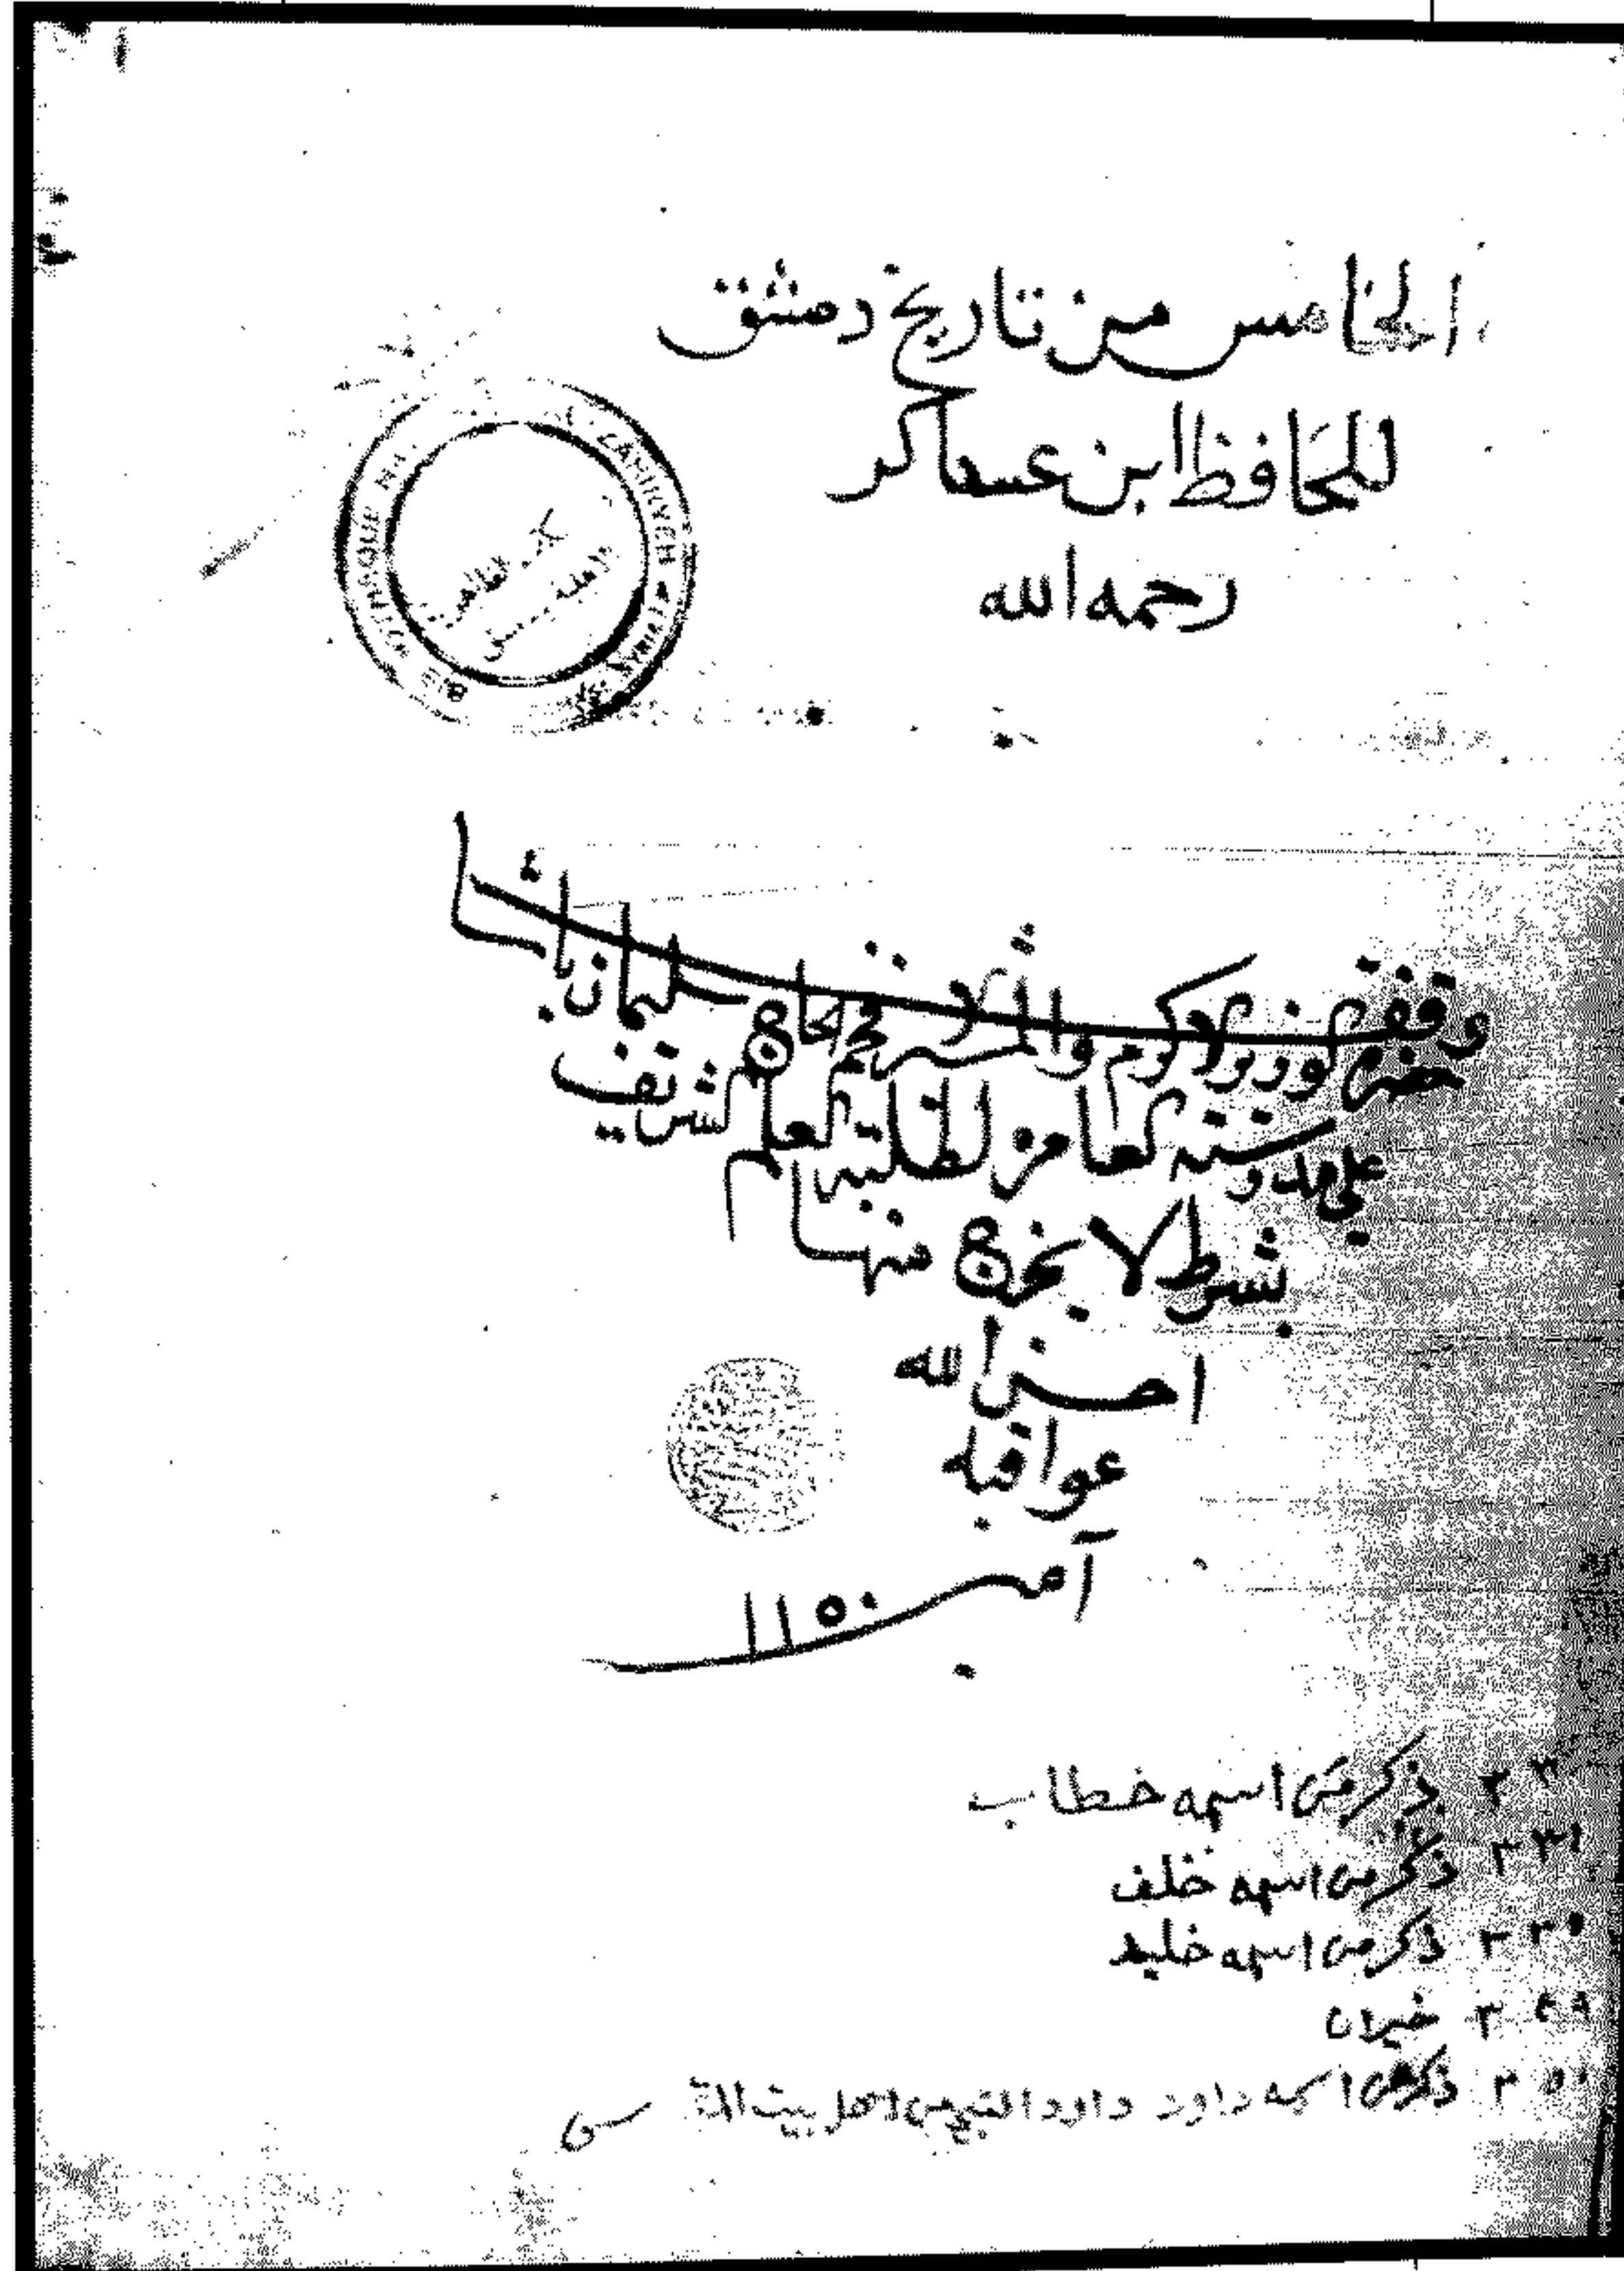 الخامس من تاريخ دمشق
للحافظ ابن عساكر
رحمه الله
BIBLIOTHÈQUE NA ZAHIRYEH
وقف
حضرة الوزير الاكرم والمشير الافخم الحاج سليمان باشا
على مدرسته العامرة لطلبة العلم الشريف
بشرط لا يخرج منها
احسن الله
عواقبه
آمين ١١٥٠
ذكر من اسمه خطاب
٣٣١ ذكر من اسمه خلف
ذكر من اسمه خليد
٣٤٩ خيران
ذكر من اسمه داود داود النبي من اهل بيت المقدس